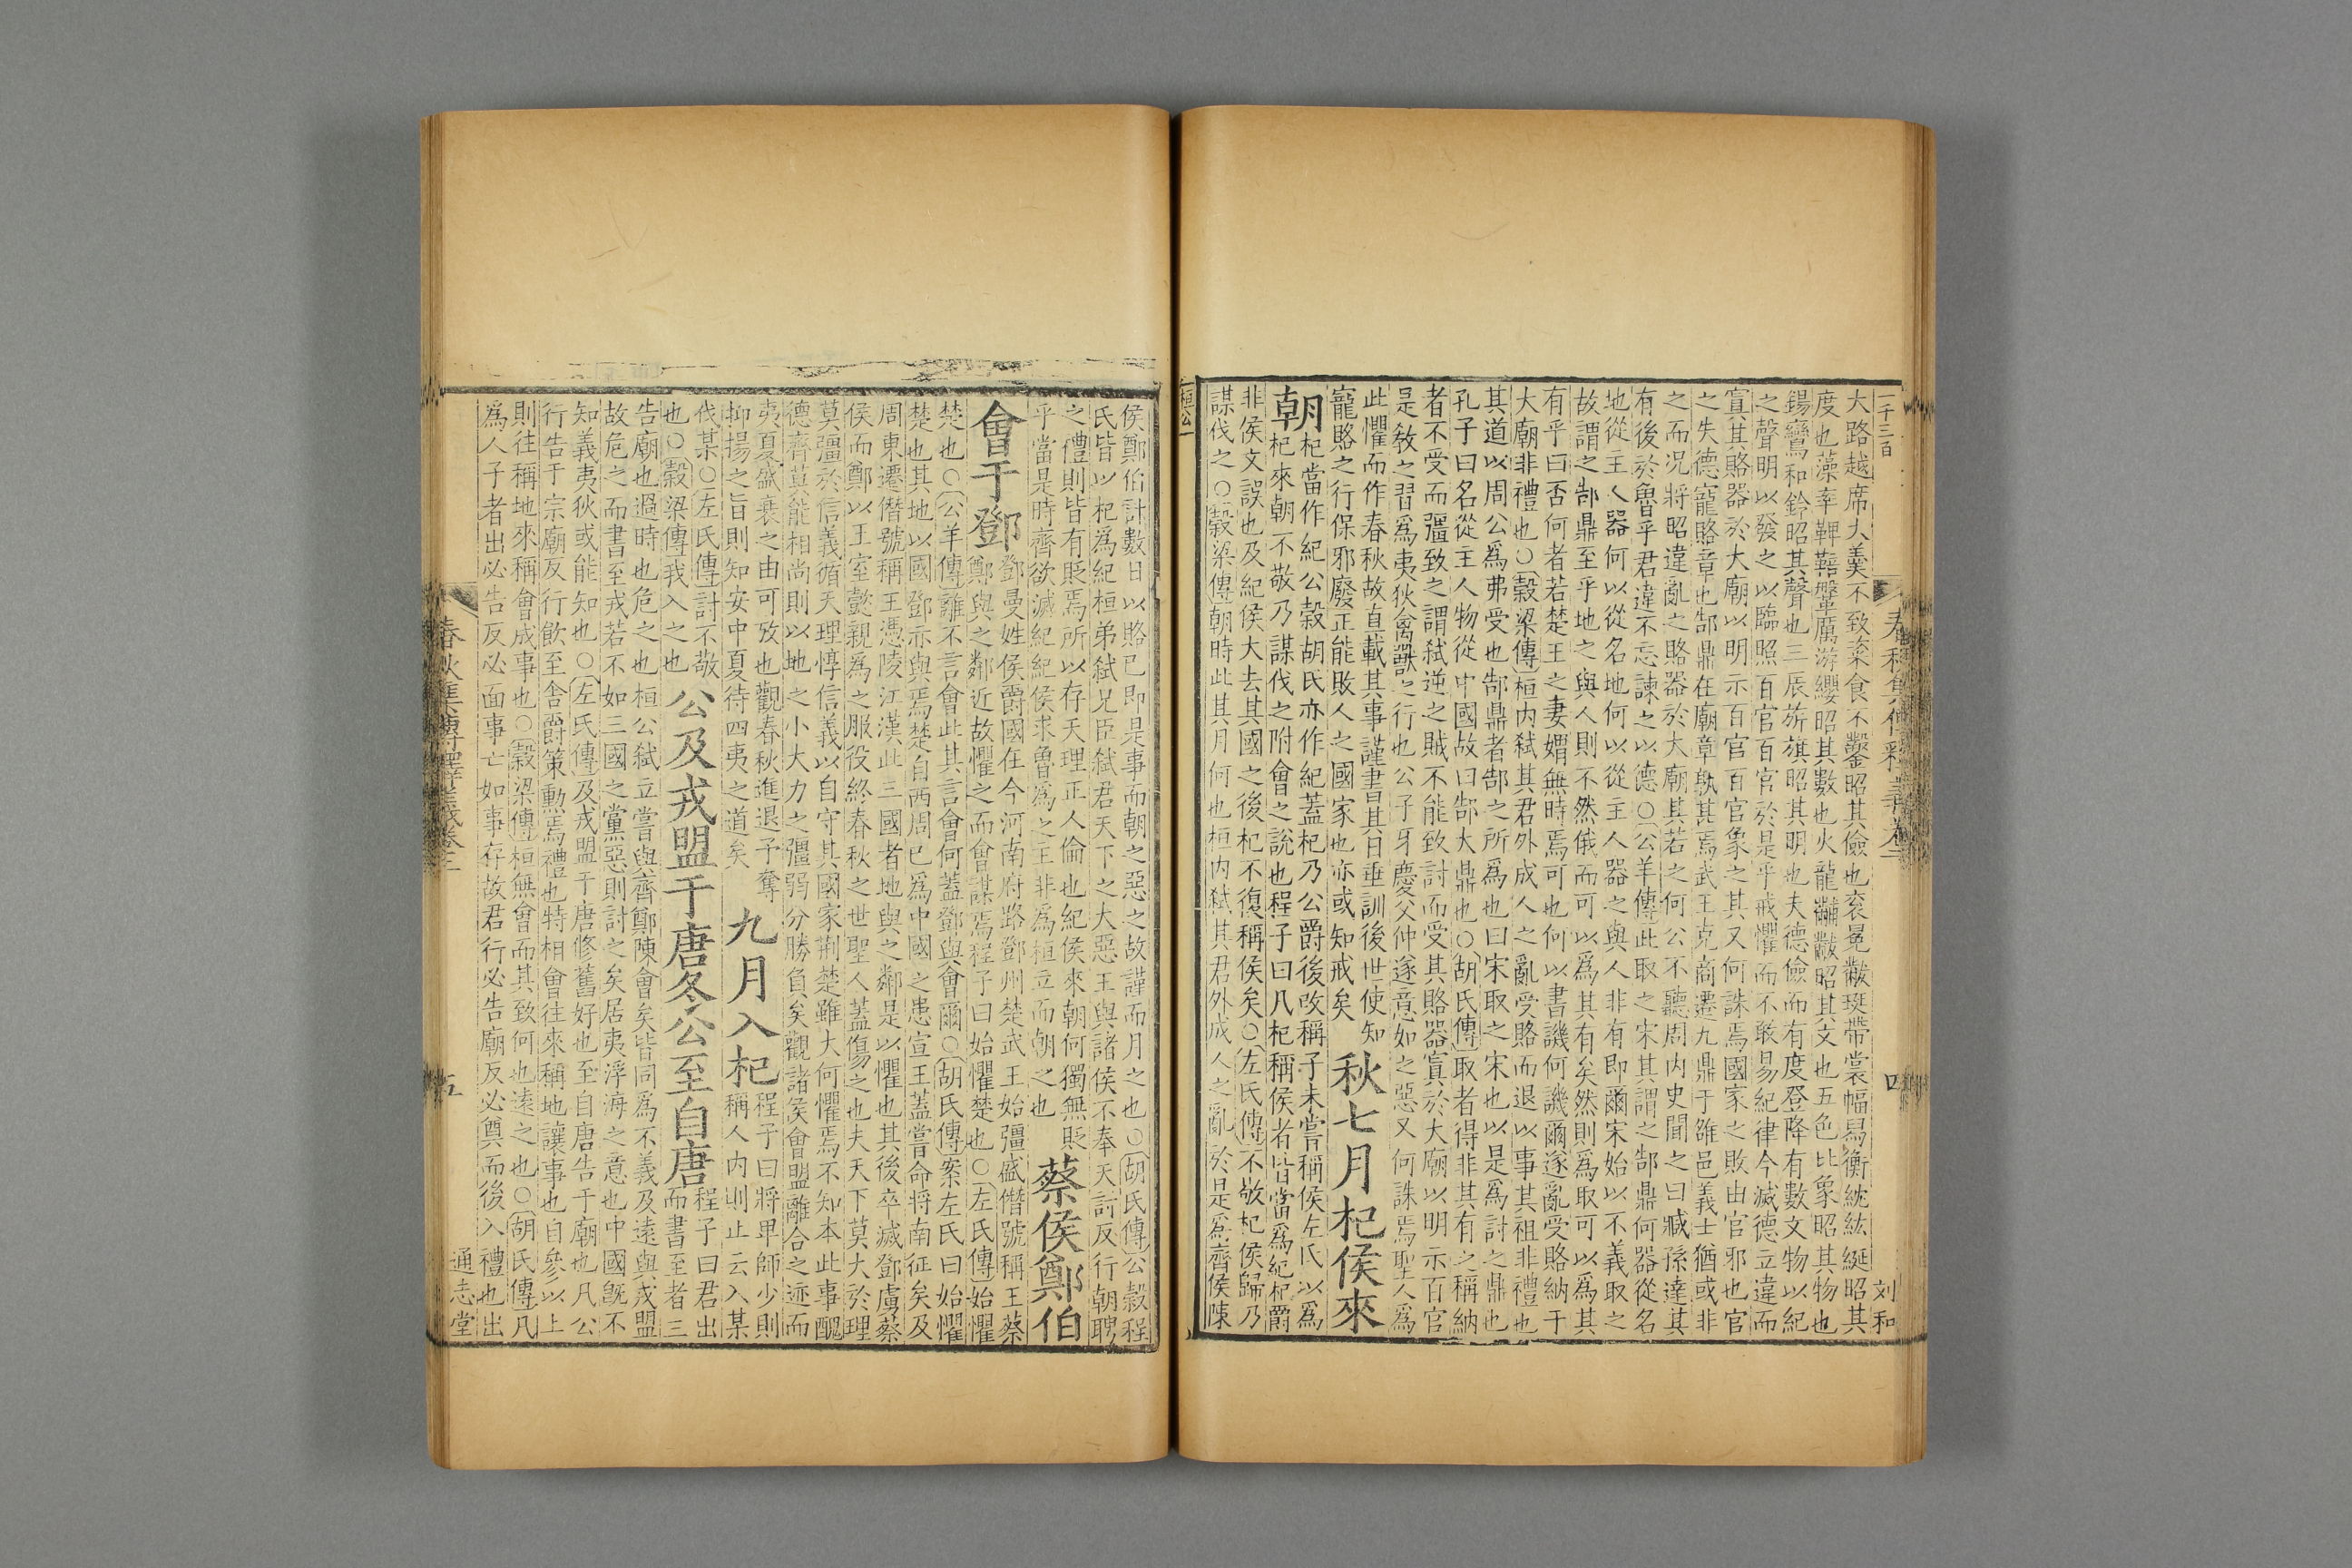 一千三百
大路越席大羹不致粢食不鑿昭其儉也衮冕黻珽帶裳幅舄衡紞紘綖昭其
度也藻率鞞鞛鞶厲游纓昭其數也火龍黼黻昭其文也五色比象昭其物也
鍚鸞和鈴昭其聲也三辰旂旗昭其明也夫德儉而有度登降有數文物以紀
之聲明以發之以臨照百官百官於是乎戒懼而不敢易紀律今滅德立違而
寘其賂器於大廟以明示百官百官象之其又何誅焉國家之敗由官邪也官
之失德寵賂章也郜鼎在廟章孰甚焉武王克商遷九鼎于雒邑義士猶或非
之而况將昭違亂之賂器於大廟其若之何公不聽周内史聞之曰臧孫達其
有後於魯乎君違不忘諫之以德○公羊傳此取之宋其謂之郜鼎何器從名
地從主人器何以從名地何以從主人器之與人非有即爾宋始以不義取之
故謂之郜鼎至乎地之與人則不然俄而可以為其有矣然則為取可以為其
有乎曰否何者若楚王之妻媦無時焉可也何以書譏何譏爾遂亂受賂納于
大廟非禮也○穀梁傳桓内弑其君外成人之亂受賂而退以事其祖非禮也
其道以周公為弗受也郜鼎者郜之所為也曰宋取之宋也以是為討之鼎也
孔子曰名從主人物從中國故曰郜大鼎也○胡氏傳取者得非其有之稱納
者不受而彊致之謂弑逆之賊不能致討而受其賂器寘於大廟以明示百官
是教之習為夷狄禽獸之行也公子牙慶父仲遂意如之惡又何誅焉聖人為
此懼而作春秋故直載其事謹書其日垂訓後世使知
寵賂之行保邪廢正能敗人之國家也亦或知戒矣
秋七月杞侯來
朝
杞當作紀公穀胡氏亦作紀蓋杞乃公爵後改稱子未嘗稱侯左氏以為
杞來朝不敬乃謀伐之附會之說也程子曰凡杞稱侯者皆當為紀杞爵
非侯文誤也及紀侯大去其國之後杞不復稱侯矣○左氏傳不敬杞侯歸乃
謀伐之○穀梁傳朝時此其月何也桓内弑其君外成人之亂於是為齊侯陳
桓公一
四
刘和
侯鄭伯討數日以賂已即是事而朝之惡之故謹而月之也○胡氏傳公穀程
氏皆以杞為紀桓弟弑兄臣弑君天下之大惡王與諸侯不奉天討反行朝聘
之禮則皆有貶焉所以存天理正人倫也紀侯來朝何獨無貶
乎當是時齊欲滅紀紀侯求魯為之主非為桓立而朝之也
蔡侯鄭伯
會于鄧
鄧曼姓侯爵國在今河南府路鄧州楚武王始彊盛僭號稱王蔡
鄭與之鄰近故懼之而會謀焉程子曰始懼楚也○左氏傳始懼
楚也○公羊傳離不言會此其言會何蓋鄧與會爾○胡氏傳案左氏曰始懼
楚也其地以國鄧亦與焉楚自西周已為中國之患宣王蓋嘗命將南征矣及
周東遷僭號稱王憑陵江漢此三國者地與之鄰是以懼也其後卒滅鄧虜蔡
侯而鄭以王室懿親為之服役終春秋之世聖人蓋傷之也夫天下莫大於理
莫彊於信義循天理惇信義以自守其國家荆楚雖大何懼焉不知本此事醜
德齊莫能相尚則以地之小大力之彊弱分勝負矣觀諸侯會盟離合之迹而
夷夏盛衰之由可攷也觀春秋進退予奪
抑揚之旨則知安中夏待四夷之道矣
九月入杞
程子曰將卑師少則
稱人内則止云入某
伐某○左氏傳討不敬
也○穀梁傳我入之也
公及戎盟于唐冬公至自唐
程子曰君出
而書至者三
告廟也過時也危之也桓公弑立嘗與齊鄭陳會矣皆同為不義及遠與戎盟
故危之而書至戎若不如三國之黨惡則討之矣居夷浮海之意也中國旣不
知義夷狄或能知也○左氏傳及戎盟于唐修舊好也至自唐告于廟也凡公
行告于宗廟反行飲至舍爵策勳焉禮也特相會往來稱地讓事也自參以上
則往稱地來稱會成事也○穀梁傳桓無會而其致何也遠之也○胡氏傳凡
為人子者出必告反必面事亡如事存故君行必告廟反必奠而後入禮也出
春秋集傳釋義卷三
五
通志堂